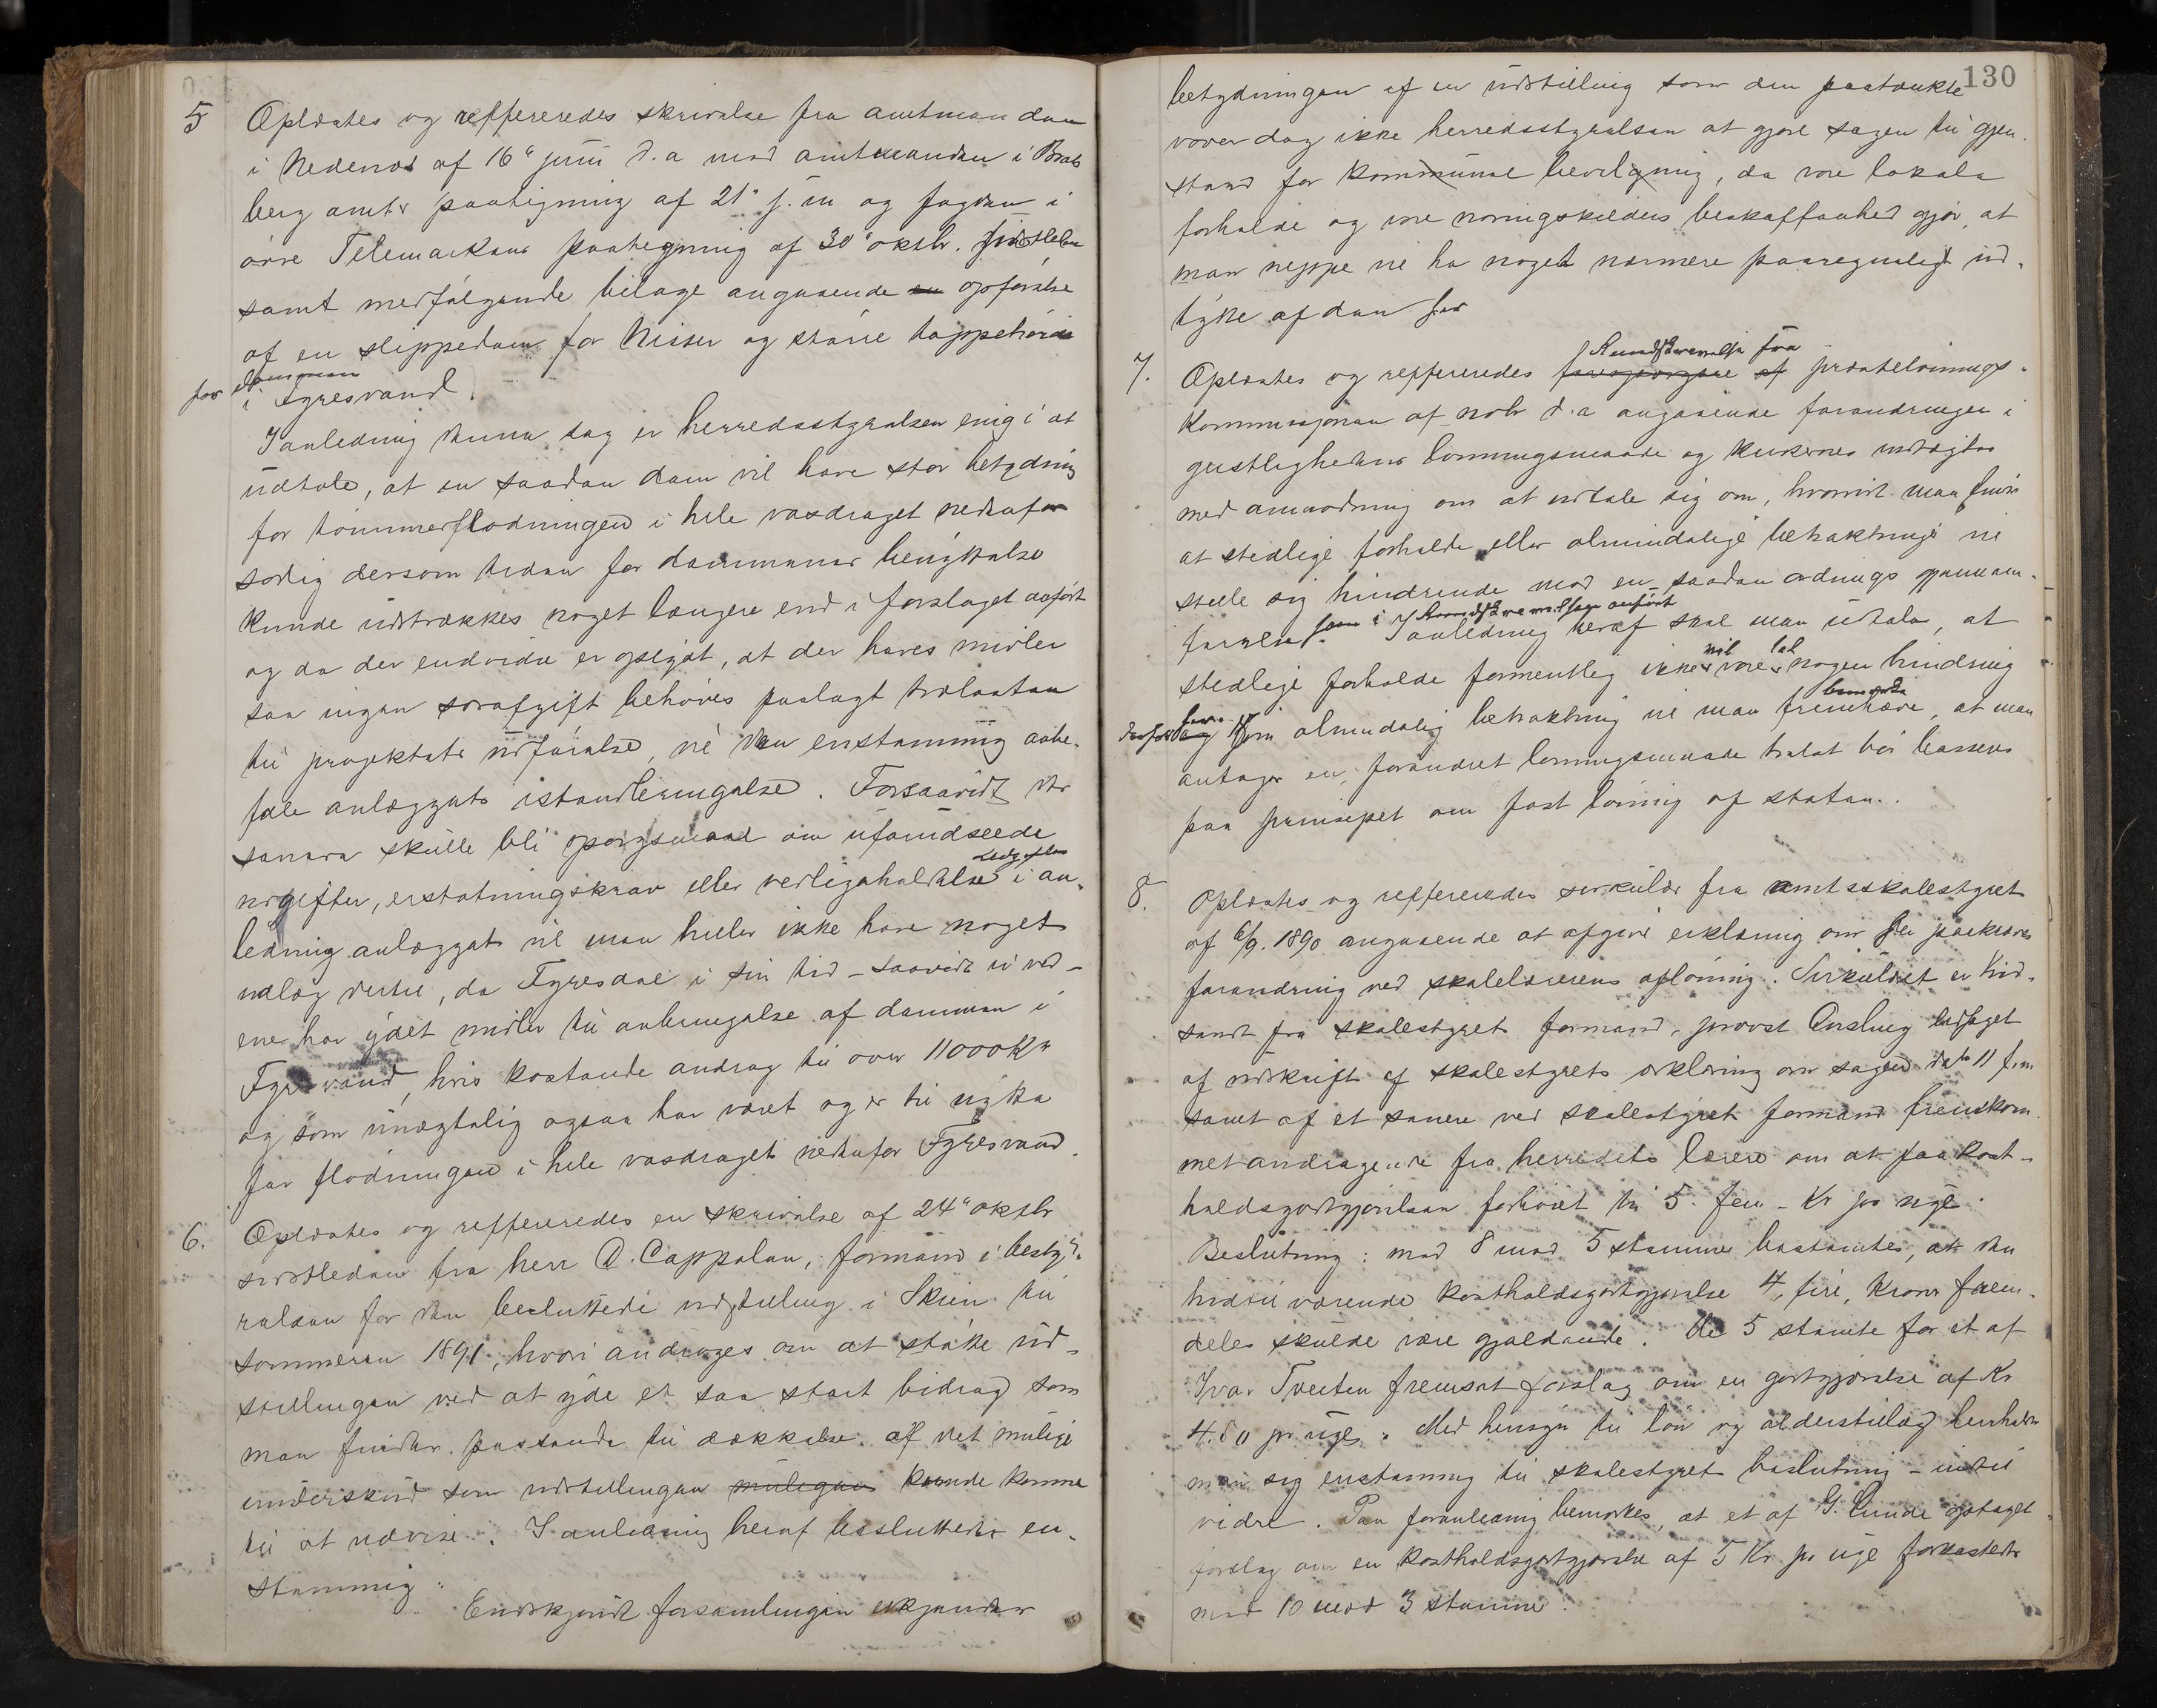 5 Oplæstes og reffereredes skrivelse fra amtmanden
i Nedenæs af 16" juni d.a med amtmanden i Brats
berg amts paategning af 21" s.m og fogden i
övre Telemarkens paategning af 30" oktbr. sidstleden
samt medfølgende bilage angaaende en opførelse
af en slippedam for Nisser og større tappehøide
for dammen
i Fyresvand.
I anledning denne sag er herredsstyrelsen enig i at
udtale, at en saadan dam vil have stor betydning
for tømmerflødningen i hele vasdraget nedenfor
særlig dersom tiden for dammenes benyttelse
kunde udstrækkes noget længere end i forslaget anført
og da der endvidere er oplyst, at der haves midler
saa ingen særafgift behøves paalagt trælasten
til projektets udførelse, vil den enstemmig anbe-
fale anlæggets istandbringelse. Forsaavidt der
senere skulle bli spørgsmaal om uforudseede
udgifter, erstatningskrav eller vedligeholdelsesudgifter i an-
ledning anlægget vil man heller ikke have noget
udlæg dertil, da Fyresdal i sin tid - saavidt vi ved -
ene har ydet midler til anbringelse af dammen i
Fyresvand, hvis kostende androg til over 11000 Kr
og som unægtelig ogsaa har været og er til nytte
for flødningen i hele vasdraget nedenfor Fyresvand.
6. Oplæstes og reffereredes en skrivelse af 24" oktbr
sidstleden fra herr D. Cappelen, formand i besty-
relsen for den besluttede udstilling i Skien til
sommeren 1891, hvori andrages om at støtte ud-
stillingen ved at yde et saa stort bidrag som
man finder passende til dækkelse af det mulige
underskud som udstillingen muligens kunde komme
til at udvise. I anledning heraf besluttedes en-
stemmig:
Endskjøndt forsamlingen erkjender
130
betydningen af en udstilling som den paatænkte
vover dog ikke herredsstyrelsen at gjøre sagen til gjen-
stand for kommunal bevilgning, da vore lokale
forholde og vore næringskilders beskaffenhed gjør, at
man neppe vil ha noget nærmere paaregneligt ud-
bytte af den her
7. Oplæstes og reffereredes forespørgsel af Rundskrivelse fra præstelønnings-
kommissjonen af novbr d.a angaaende forandringer i
geistlighedens lønningsmaade og kirkernes indtægter
med anmodning om at udtale sig om, hvorvidt man finder
at stedlige forholde eller almindelige betraktninger vil
stille sig hindrende mod en saadan ordnings gjennem-
førelse som i Rundskrivelsen anført. I anledning heraf skal man udtale, at
stedlige forholde formentlig ikke vil være til nogen hindring
derfor. Som almindelig betraktning vil man fremhæve bemærke, at man
antager en forandret lønningsmaade helst bør baseres
paa prinsipet om fast lønning af staten.
8. Oplæstes og reffereredes sirkulær fra amtsskolestyret
af 6/9. 1890 angaaende at afgive erklæring om den paakrævede
forandring ved skolelærerens aflønning. Sirkulæret er hid-
sendt fra skolestyrets formand, provst Anslug ledsaget
af udskrift af skolestyrets erklæring om sagen dat. 11 f.m
samt af et senere ved skolestyrets formand fremkom-
met andragende fra herredets lærere om at faa kost-
holdsgodtgjørelsen forhøiet til 5 - fem - Kr pr uge.
Beslutning: med 8 mod 5 stemmer bestemtes, at den
hidtil værende kostholdsgodtgjørelse 4, fire, kroner frem-
deles skulde være gjældende. De 5 stemte for et af
Ivar Tveiten fremsat forslag om en godtgjørelse af Kr
4.50 pr uge. Med hensyn til løn og alderstillæg henholdt
man sig enstemmig til skolestyrets beslutning - indtil
videre. Paa foranledning bemærkes, at et af G. Lunde optaget
forslag om en kostholdsgodtgjørelse af 5 Kr pr uge forkastedes
med 10 mod 3 stemmer.